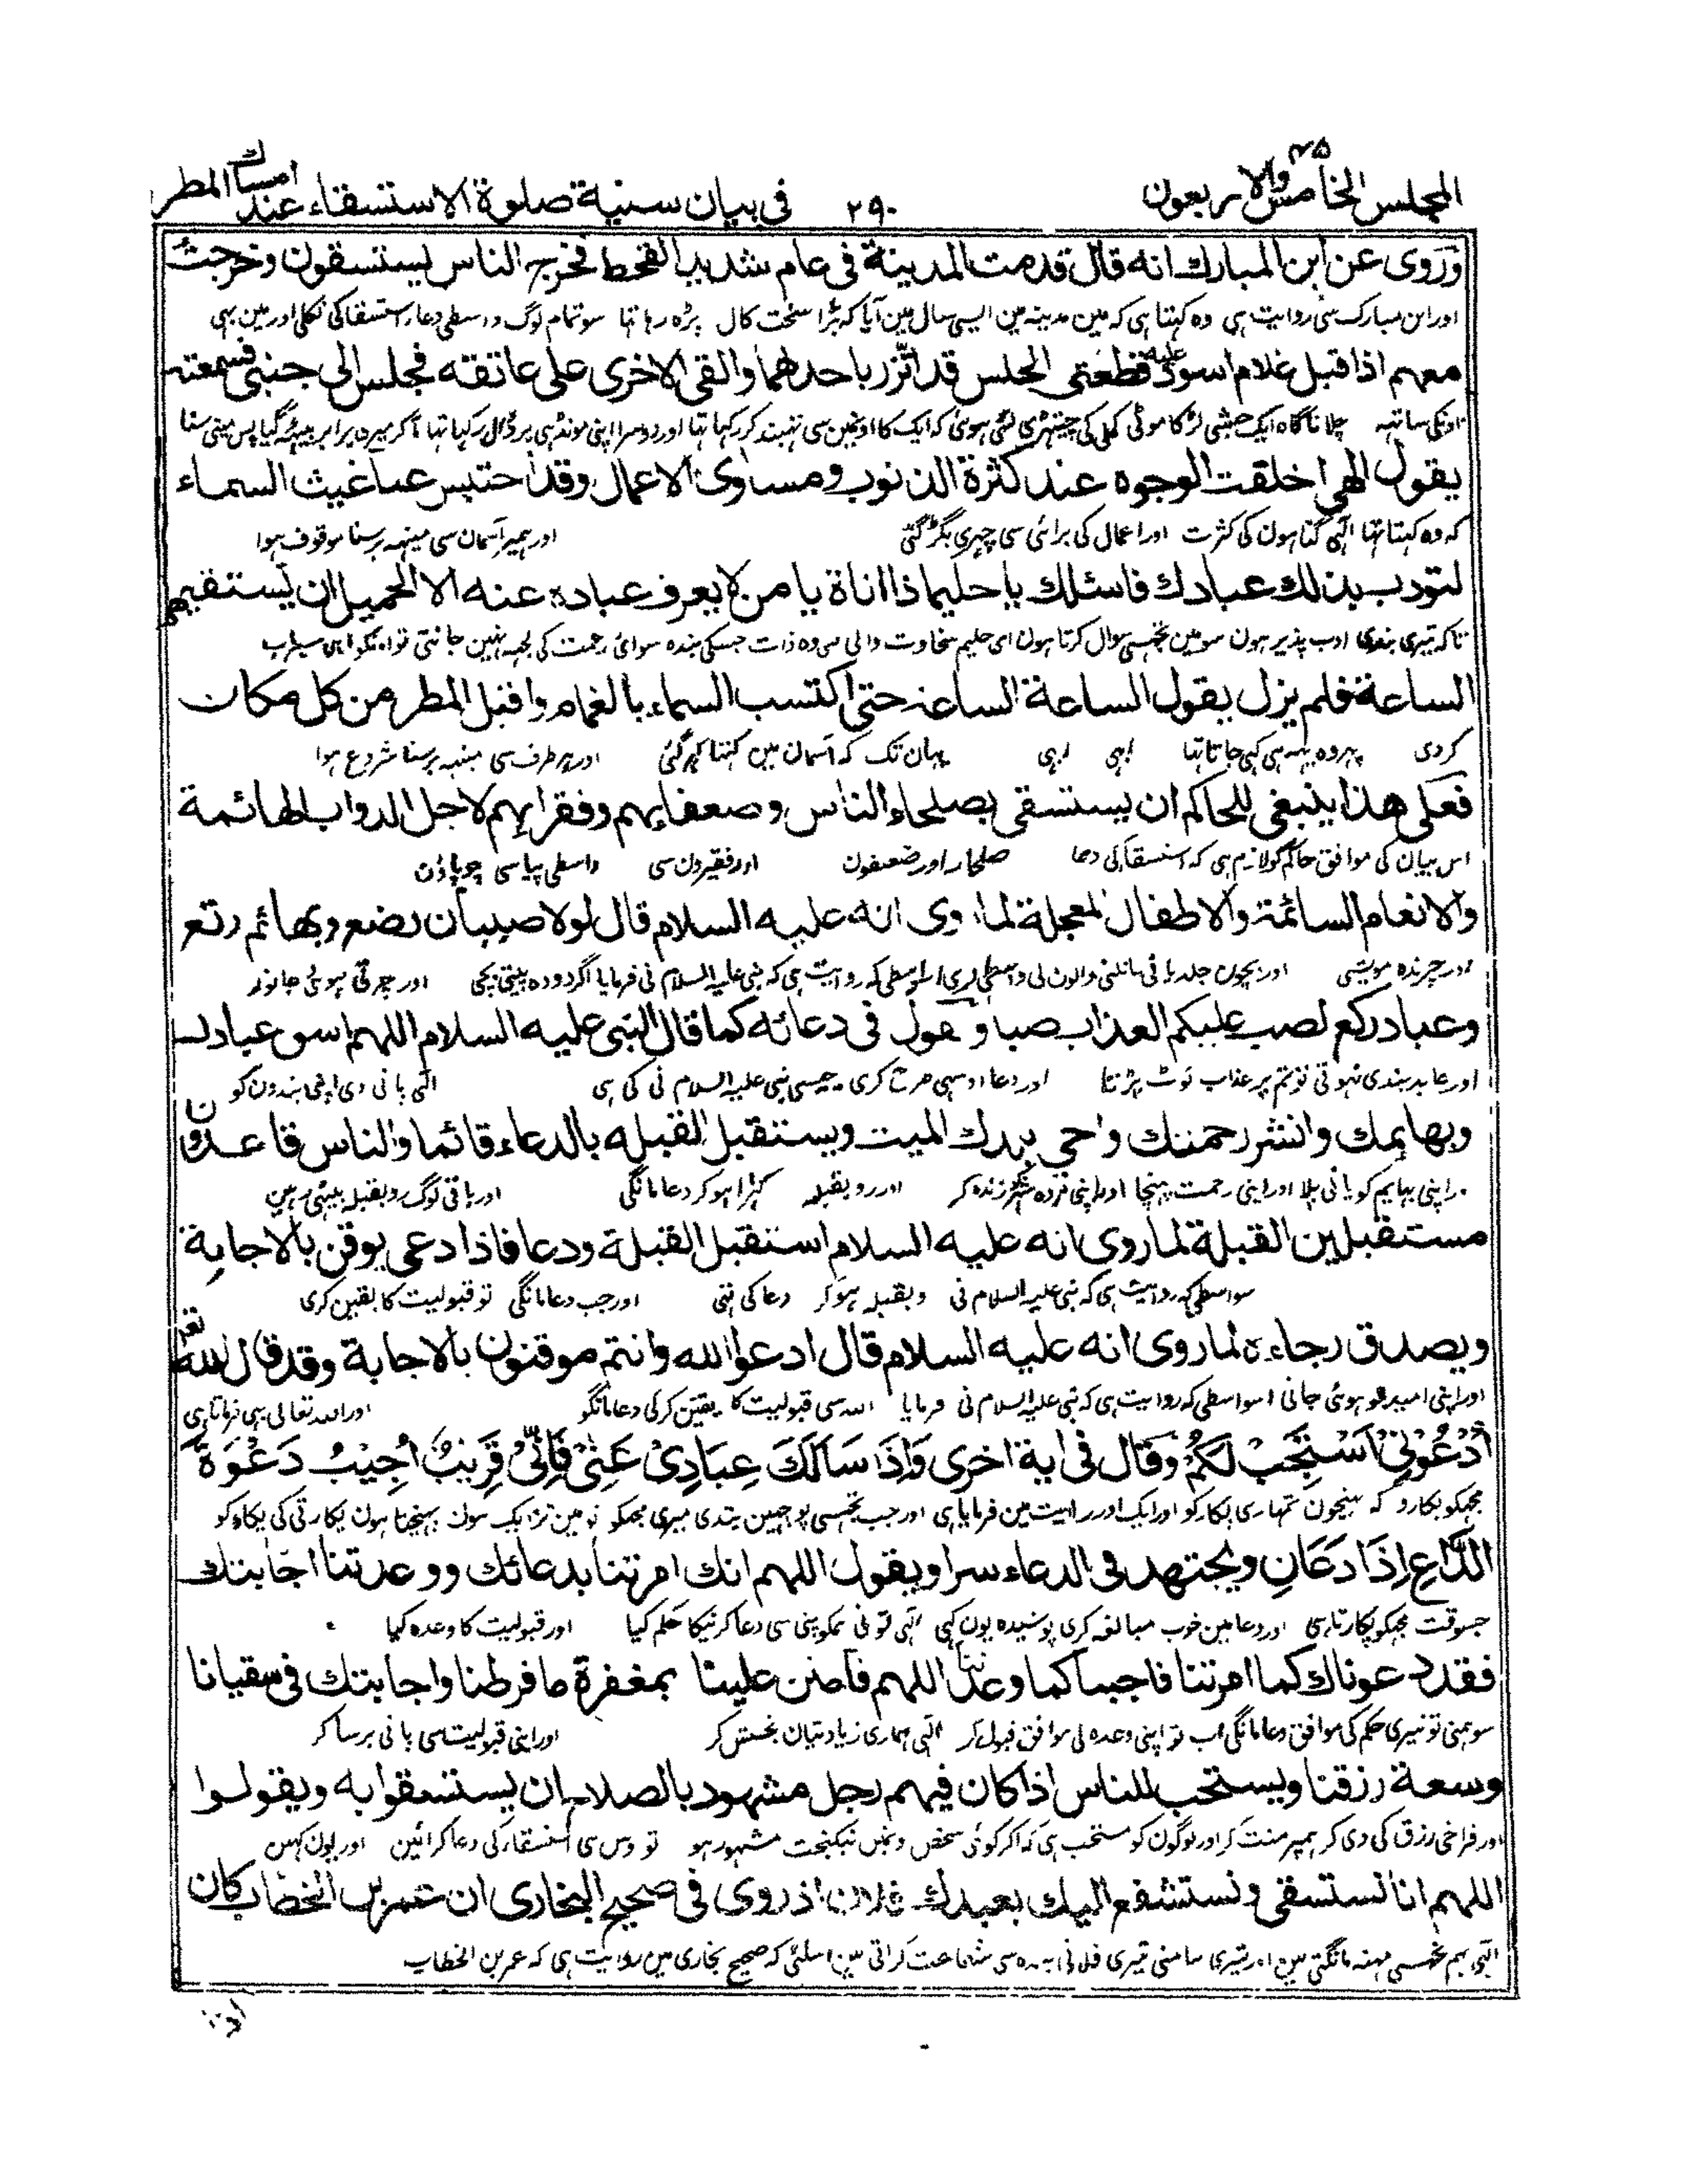 المجلس الخامس والاربعون ٤٥
٢٩٠
فی بیان سنیة صلوة الاستسقاء عند امساك المطر
وروی عن ابن المبارك انه قال قدمت المدینة فی عام شدید القحط فخرج الناس یستسقون وخرجت
اور ابن مبارک سی روایت ہی وہ کہتا ہی کہ مین مدینہ مین ایسی سال مین آیا کہ بڑا سخت کال پڑہ رہا تہا سو تمام لوگ واسطی دعاء استسقا کی نکلی اور مین بہی
معهم اذا قبل غلام اسود علیه قطعتی الحلس قد اتزر باحدهما والقی الاخری علی عاتقه فجلس الی جنبی فسمعته
اونکی ساتہہ چلا ناگاہ ایک حبشی لڑکا موٹی کمل کی چیتہڑی لئی ہوئی کہ ایک کا اونمین سی تہبند کر رکہا تہا اور دوسرا اپنی مونڈہی پر ڈال رکہا تہا آکر میری برابر بیٹہہ گیا پس مینی سنا
یقول الهی اخلقت الوجوه عند كثرة الذنوب ومساوی الاعمال وقد احتبس عنا غیث السماء
کہ وہ کہتا تہا الٰہی گناہون کی کثرت اور اعمال کی برائی سی چہری بگڑ گئی اور ہمپر آسمان سی مینہہ برسنا موقوف ہوا
لتودب بذلك عبادك فاسئلك یا حلیما ذا اناة یا من لا یعرف عباده عنه الا الجمیل ان یستقیهم
تاکہ تیری بندی ادب پذیر ہون سو مین تجہسی سوال کرتا ہون ای حلیم سخاوت والی ای وہ ذات جسکی بندہ سوائی رحمت کی کچہہ نہین جانتی تو انکو ابہی سیراب
الساعة فلم یزل یقول الساعة الساعة حتی اكتسب السماء بالغمام واقبل المطر من كل مكان
کردی پہر وہ یہہ ہی کہی جاتا تہا ابہی ابہی یہان تک کہ آسمان مین گہٹا گہر گئی اور ہر طرف سی مینہہ برسنا شروع ہوا
فعلی هذا ینبغی للحاكم ان یستسقی بصلحاء الناس وضعفایهم وفقرایهم لاجل الدواب الهائمة
اس بیان کی موافق حاکم کو لازم ہی کہ استسقا کی دعا صلحار اور ضعیفون اور فقیرون سی واسطی پیاسی چوپاؤن
والانعام السائمة والاطفال المعجلة لما روی انه علیه السلام قال لولا صبیان رضع وبهائم رتع
اور چرندہ مویشی اور بچون جلد پانی مانگنی والون کی واسطی کری اسواسطی کہ روایت ہی کہ نبی علیہ السلام نی فرمایا اگر دودہ پیتی بچی اور چرتی ہوئی جانور
وعباد ركع لصب علیكم العذاب صبا ویقول فی دعائه كما قال النبی علیه السلام اللهم اسق عبادك
اور عابد بندی نہوتی تو تم پر عذاب ٹوٹ پڑتا اور دعا اوسہی طرح کری جیسی نبی علیہ السلام نی کی ہی الٰہی پانی دی اپنی بندون کو
وبهایمك وانشر رحمتك واحی بلدك المیت ویستقبل القبله بالدعاء قائما والناس قاعدون
اور اپنی بہایم کو پانی پلا اور اپنی رحمت پہنچا اور اپنی مردہ شہر کو زندہ کر اور رو بقبلہ کہڑا ہو کر دعا مانگی اور باقی لوگ رو بقبلہ بیٹہی رہین
مستقبلین القبلة لما روی انه علیه السلام استقبل القبلة ودعا فاذا دعی یوقن بالاجابة
سواسطی کہ روایت ہی کہ نبی علیہ السلام نی رو بقبلہ ہو کر دعا کی تہی اور جب دعا مانگی تو قبولیت کا یقین کری
ویصدق رجاءه لما روی انه علیه السلام قال ادعوا الله وانتم موقنون بالاجابة وقد قال الله تعر
اور اپنی امید ہو ہوئی جانی اسواسطی کہ روایت ہی کہ نبی علیہ السلام نی فرمایا اللہ سی قبولیت کا یقین کرکی دعا مانگو اور اللہ تعالی بہی فرماتا ہی
اُدْعُوْنِیْ اَسْتَجِبْ لَكُمْ وقال فی ایة اخری وَاِذَا سَاَلَكَ عِبَادِیْ عَنِّیْ فَاِنِّیْ قَرِیْبٌ اُجِیْبُ دَعْوَةَ
مجہکو پکارو کہ پہنچون تمہاری پکار کو اور ایک اور آیت مین فرمایا ہی اور جب تجہسی پوچہین بندی میری مجہکو تو مین نزدیک ہون پہنچتا ہون پکارتی کی پکار کو
الدَّاعِ اِذَا دَعَانِ ویجتهد فی الدعاء سرا ویقول اللهم انك امرتنا بدعائك ووعدتنا اجابتك
جسوقت مجہکو پکارتا ہی اور دعا مین خوب مبالغہ کری پوشیدہ یون کہی الٰہی تو نی ہمکو اپنی سی دعا کرنیکا حکم کیا اور قبولیت کا وعدہ کیا
فقد دعوناك كما امرتنا فاجبنا كما وعدتنا اللهم فامنن علینا بمغفرة ما فرطنا واجابتك فی سقیانا
سو ہمنی تو تیری حکم کی موافق دعا مانگی اب تو اپنی وعدہ کی موافق قبول کر الٰہی ہماری زیادتیان بخشش کر اور اپنی قبولیت سی پانی برسا کر
وسعة رزقنا ویستحب للناس اذا كان فیهم رجل مشهود بالصلاح ان یستسقوا به ویقولوا
اور فراخی رزق کی دی کر ہمپر منت کر اور لوگون کو مستحب ہی کہ اگر کوئی شخص اونمین نیکبخت مشہور ہو تو اوس سی استسقار کی دعا کرائین اور یون کہین
اللهم انا نستسقی ونستشفع الیك بعبدك فلان اذ روی فی صحیح البخاری ان عمر بن الخطاب كان
الٰہی ہم تجہسی مینہہ مانگتی ہین اور تیری سامنی تیری فلانی بندہ سی شفاعت کراتی ہین اسلئی کہ صحیح بخاری مین روایت ہی کہ عمر بن الخطاب